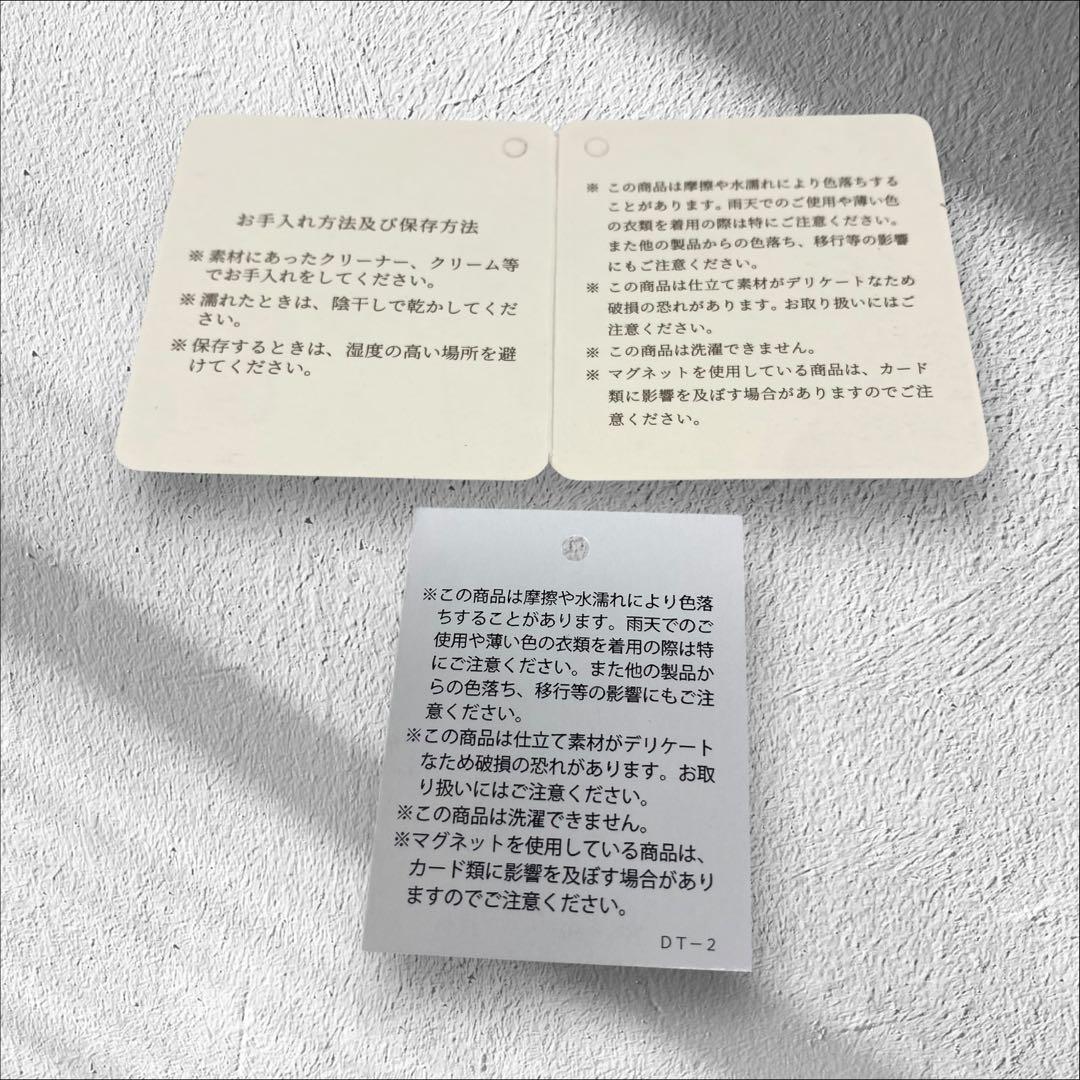 お手入れ方法及び保存方法
※素材にあったクリーナー、クリーム等
でお手入れをしてください。
※濡れたときは、陰干しで乾かしてくだ
さい。
※保存するときは、湿度の高い場所を避
けてください。
※ この商品は摩擦や水濡れにより色落ちする
ことがあります。雨天でのご使用や薄い色
の衣類を着用の際は特にご注意ください。
また他の製品からの色落ち、移行等の影響
にもご注意ください。
※ この商品は仕立て素材がデリケートなため
破損の恐れがあります。お取り扱いにはご
注意ください。
※ この商品は洗濯できません。
※ マグネットを使用している商品は、カード
類に影響を及ぼす場合がありますのでご注
意ください。
※この商品は摩擦や水濡れにより色落
ちすることがあります。雨天でのご
使用や薄い色の衣類を着用の際は特
にご注意ください。また他の製品か
らの色落ち、移行等の影響にもご注
意ください。
※この商品は仕立て素材がデリケート
なため破損の恐れがあります。お取
り扱いにはご注意ください。
※この商品は洗濯できません。
※マグネットを使用している商品は、
カード類に影響を及ぼす場合があり
ますのでご注意ください。
DT−2